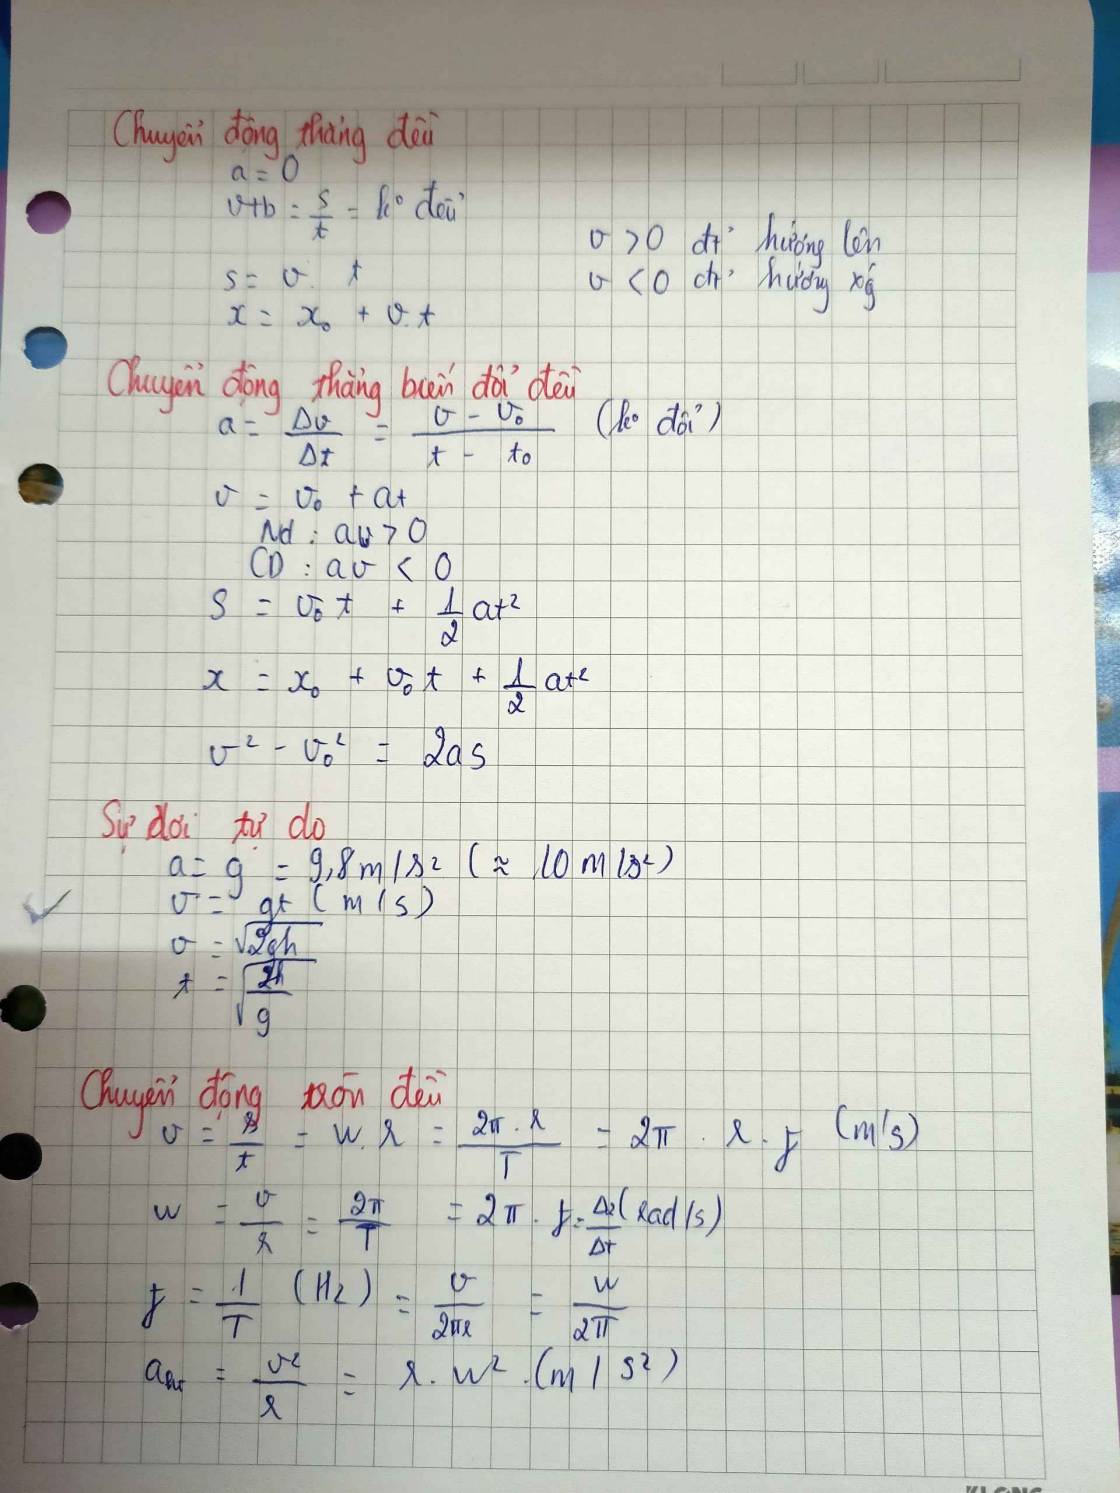 Chuyển động thẳng đều
a = 0
vtb = s/t = ko đều
v > 0 đt hướng lên
s = v. t
v < 0 đt hướng xg
x = x₀ + v.t
Chuyển động thẳng biến đổi đều
a = Δv/Δt = (v - v₀)/(t - t₀) (ko đổi)
v = v₀ + at
Nd : av > 0
CD : av < 0
S = v₀t + 1/2 at²
x = x₀ + v₀t + 1/2 at²
v² - v₀² = 2as
Sự dơi tự do
a = g = 9,8m/s² (≈ 10 m/s²)
v = gt (m/s)
v = √2gh
t = √(2h/g)
Chuyển động tròn đều
v = s/t = w.r = 2π.r/T = 2π . r . f (m/s)
w = v/r = 2π/T = 2π . f = Δ/Δt (rad/s)
f = 1/T (Hz) = v/2πr = w/2π
aht = v²/r = r.w² .(m/s²)